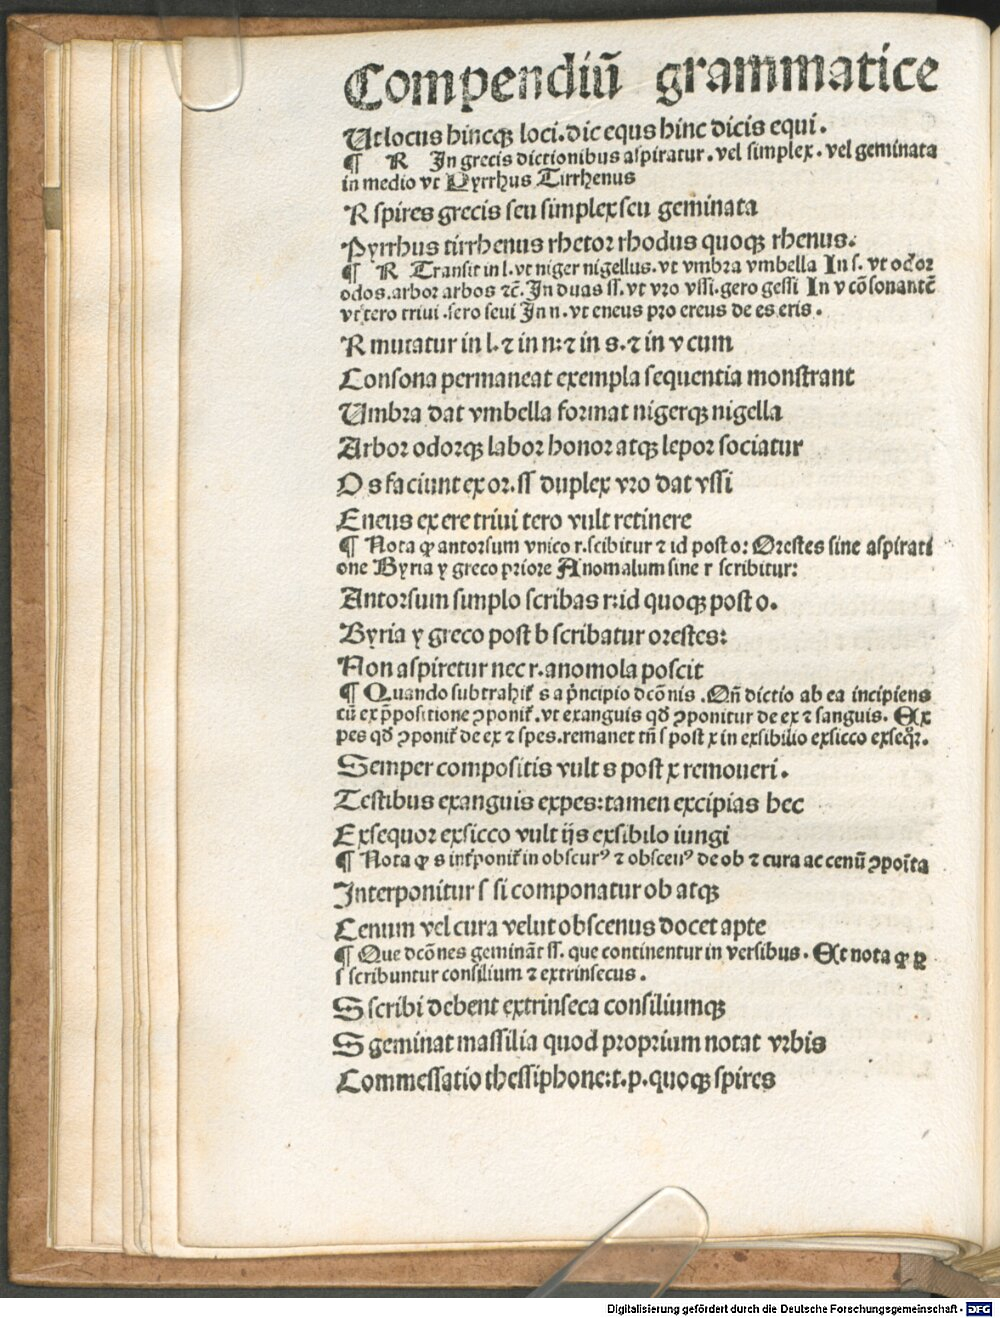 Compendiū grammatice
Ut locus hincqꝫ loci. dic equs hinc dicis equi.
¶ R In grecis dictionibus aſpiratur. vel ſimplex. vel geminata
in medio vt Pyrrhus Tirrhenus
R ſpires grecis ſeu ſimplex ſeu geminata
Pyrrhus tirrhenus rhetor rhodus quoqꝫ rhenus.
¶ R Tranſit in l. vt niger nigellus. vt vmbra vmbella In ſ. vt odor
odos. arbor arbos ⁊c̄. In duas ſſ. vt vro vſſi. gero geſſi In v cōſonantē
vt tero triui. ſero ſeui In n. vt eneus pro ereus de es eris.
R mutatur in l. ⁊ in n: ⁊ in s. ⁊ in v cum
Conſona permaneat exempla ſequentia monſtrant
Umbra dat vmbella format nigerqꝫ nigella
Arbor odorqꝫ labor honor atqꝫ lepor ſociatur
O s faciunt ex or. ſſ duplex vro dat vſſi
Eneus ex ere triui tero vult retinere
¶ Nota ꝙ antorſum vnico r. ſcibitur ⁊ id poſt o: Oreſtes ſine aſpirati
one Byria y greco priore Anomalum ſine r ſcribitur:
Antorſum ſimplo ſcribas r: id quoqꝫ poſt o.
Byria y greco poſt b ſcribatur oreſtes:
Non aſpiretur nec r. anomola poſcit
¶ Quando ſubtrahit᷑ s a p̄ncipio dcōnis. Qn̄ dictio ab ea incipiens
cū ex p̄poſitione ꝯponit᷑. vt exanguis qd̄ ꝯponitur de ex ⁊ ſanguis. Ex
pes qd̄ ꝯponit᷑ de ex ⁊ ſpes. remanet tn̄ ſ poſt x in exſibilio exſicco exſeqr̄.
Semper compoſitis vult s poſt x remoueri.
Teſtibus exanguis expes: tamen excipias hec
Exſequor exſicco vult ijs exſibilo iungi
¶ Nota ꝙ s int̄ponit᷑ in obſcurꝰ ⁊ obſcenꝰ de ob ⁊ cura ac cenū ꝯpoīta
Interponitur ſ ſi componatur ob atqꝫ
Cenum vel cura velut obſcenus docet apte
¶ Que dcōnes gemināt ſſ. que continentur in verſibus. Et nota ꝙ ꝑ
ſ ſcribuntur conſilium ⁊ extrinſecus.
S ſcribi debent extrinſeca conſiliumqꝫ
S geminat maſſilia quod proprium notat vrbis
Commeſſatio theſſiphone: t. p. quoqꝫ ſpires
Digitalisierung gefördert durch die Deutsche Forschungsgemeinschaft - DFG